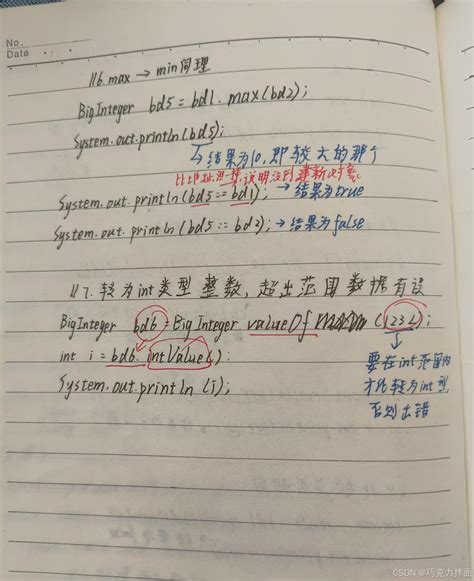 No.
Date
116.max → min同理
BigInteger bd5 = bd1.max(bd2);
System.out.println(bd5);
↳结果为10,即较大的那个
比地址一样,说明没创建新对象
System.out.println(bd5==bd1); →结果为true
System.out.println(bd5==bd2); →结果为false
117.转为int类型整数,超出范围数据有误
BigInteger bd6=BigInteger valueOf (1234);
int i=bd6.intValue();
要在int范围内
System.out.println(i);
才能转为int型
否则出错
CSDN @巧克力拌面